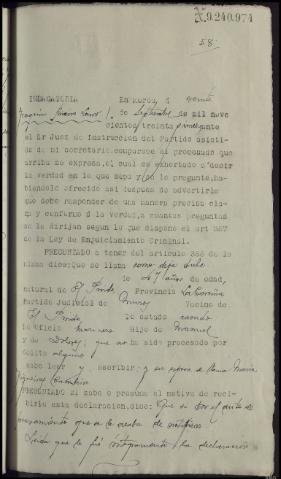 Nº 9.240.974
58
INDAGATORIA En Muros, a veinte
Joaquín Lomos de Septiembre de mil nove
cientos treinta y ante
el Sr Juez de Instrucción del Partido asisti-
do de mi Secretario, comparece el procesado que
arriba se expresa, el cual es exhortado a decir
la verdad en lo que sepa y se le pregunte, ha-
biéndolo ofrecido así después de advertirle
que debe responder de una manera precisa cla-
ra y conforme a la verdad, a cuantas preguntas
se le dirijan según lo que dispone el art 387
de la Ley de Enjuiciamiento Criminal.
PREGUNTADO a tenor del artículo 388 de la
misma dice: que se llama como deja dicho
de 47 años de edad,
natural de El Pindo Provincia La Coruña
Partido Judicial de Muros Vecino de
El Pindo de estado casado
de oficio marinero Hijo de Manuel
y de Dolores, que no ha sido procesado por
delito alguno
Sabe leer y escribir y su esposa se llama María
PREGUNTADO si sabe o presume el motivo de reci-
birle esta declaración, dice: Que es por el auto de
procesamiento que se le acaba de notificar
Leída que le fué íntegramente la declaración